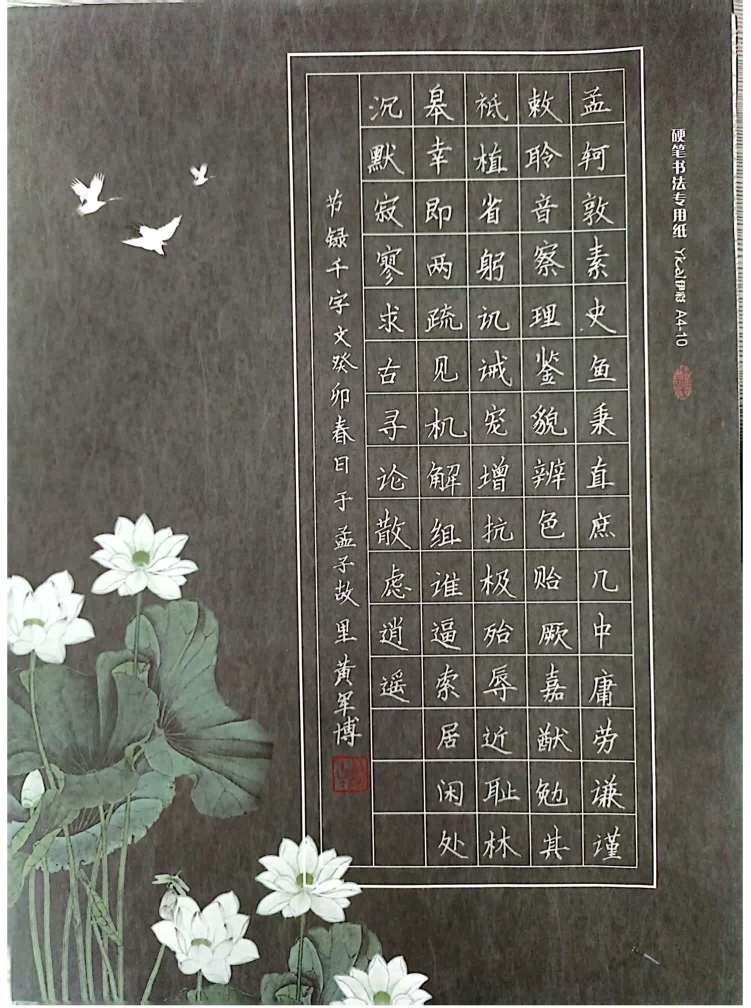 孟轲敦素史鱼秉直庶几中庸劳谦谨
敕聆音察理鉴貌辨色贻厥嘉猷勉其
祗植省躬讥诫宠增抗极殆辱近耻林
皋幸即两疏见机解组谁逼索居闲处
沉默寂寥求古寻论散虑逍遥
节録千字文癸卯春日于孟子故里黄军博
硬笔书法专用纸 A4-10